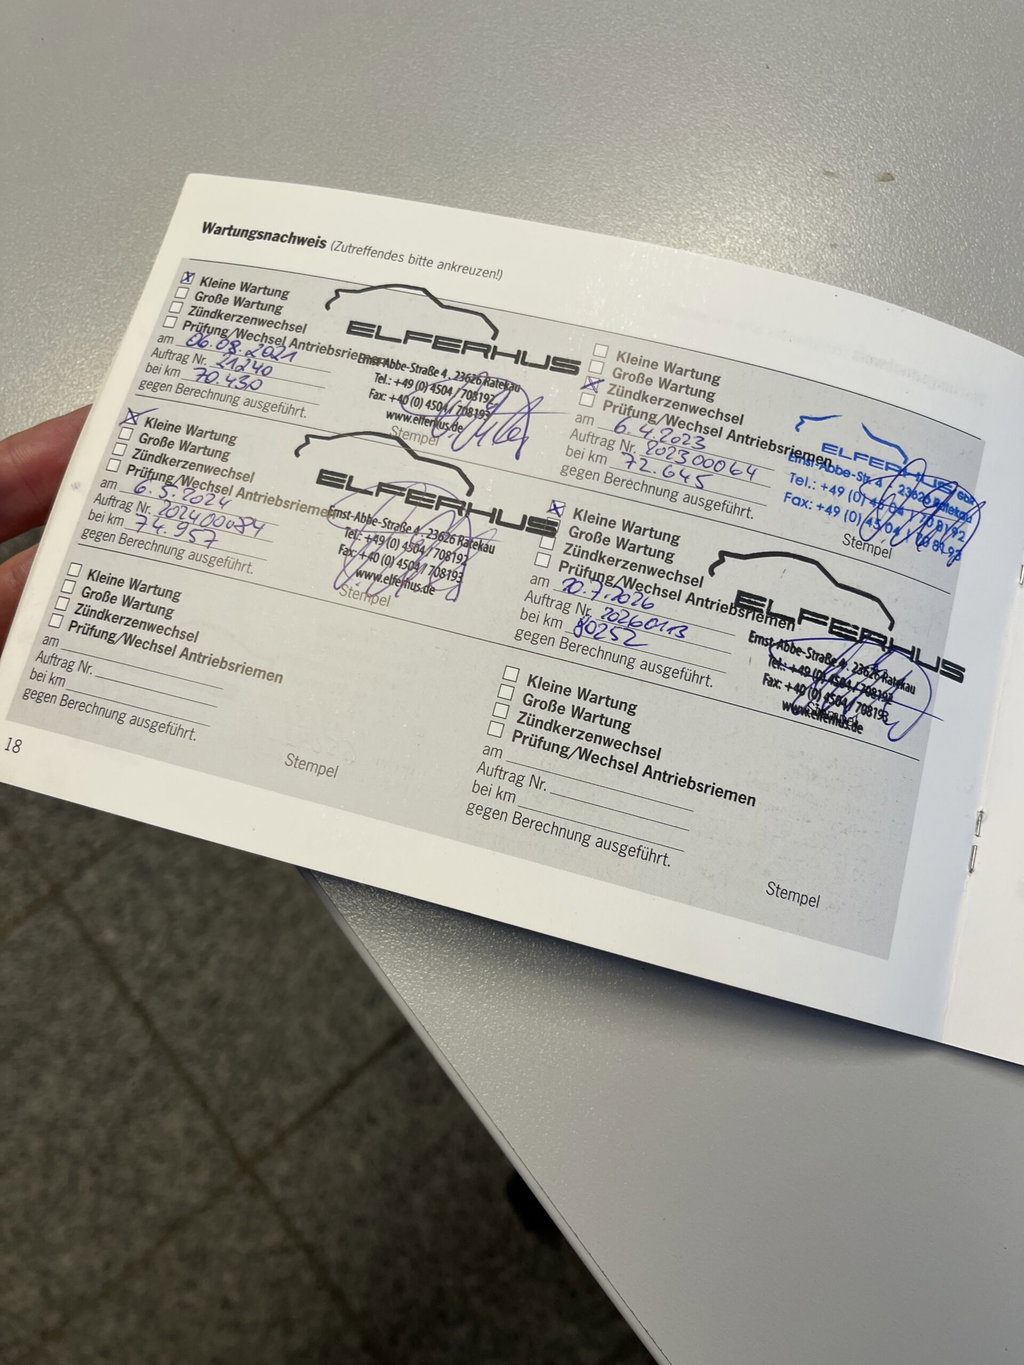 Wartungsnachweis (Zutreffendes bitte ankreuzen!)
Kleine Wartung
Große Wartung
Zündkerzenwechsel
Prüfung/Wechsel Antriebsriemen
am 06.08.2021
Auftrag Nr. 21240
bei km 70.430
gegen Berechnung ausgeführt.
ELFERHUS
Ernst-Abbe-Straße 4 . 23626 Ratekau
Tel.: +49 (0) 4504 / 708192
Fax: +40 (0) 4504 / 708193
www.elferhus.de
Stempel
Kleine Wartung
Große Wartung
Zündkerzenwechsel
Prüfung/Wechsel Antriebsriemen
am 6.4.2023
Auftrag Nr. 202300064
bei km 72.645
gegen Berechnung ausgeführt.
Ernst-Abbe-Str. 4 23626 Ratekau
Tel.: +49 (0) 45 04 / 70 81 92
Fax: +49 (0) 45 04 / 70 81 93
Stempel
Kleine Wartung
Große Wartung
Zündkerzenwechsel
Prüfung/Wechsel Antriebsriemen
am 6.5.2024
Auftrag Nr. 202400084
bei km 74.957
gegen Berechnung ausgeführt.
ELFERHUS
Ernst-Abbe-Straße 4 . 23626 Ratekau
Tel.: +49 (0) 4504 / 708192
Fax: +40 (0) 4504 / 708193
www.elferhus.de
Stempel
Kleine Wartung
Große Wartung
Zündkerzenwechsel
Prüfung/Wechsel Antriebsriemen
am 20.7.2026
Auftrag Nr. 20260113
bei km 80252
gegen Berechnung ausgeführt.
ELFERHUS
Ernst-Abbe-Straße 4 . 23626 Ratekau
Tel.: +49 (0) 4504 / 708192
Fax: +40 (0) 4504 / 708193
www.elferhus.de
Kleine Wartung
Große Wartung
Zündkerzenwechsel
Prüfung/Wechsel Antriebsriemen
am
Auftrag Nr.
bei km
gegen Berechnung ausgeführt.
Stempel
Kleine Wartung
Große Wartung
Zündkerzenwechsel
Prüfung/Wechsel Antriebsriemen
am
Auftrag Nr.
bei km
gegen Berechnung ausgeführt.
Stempel
18